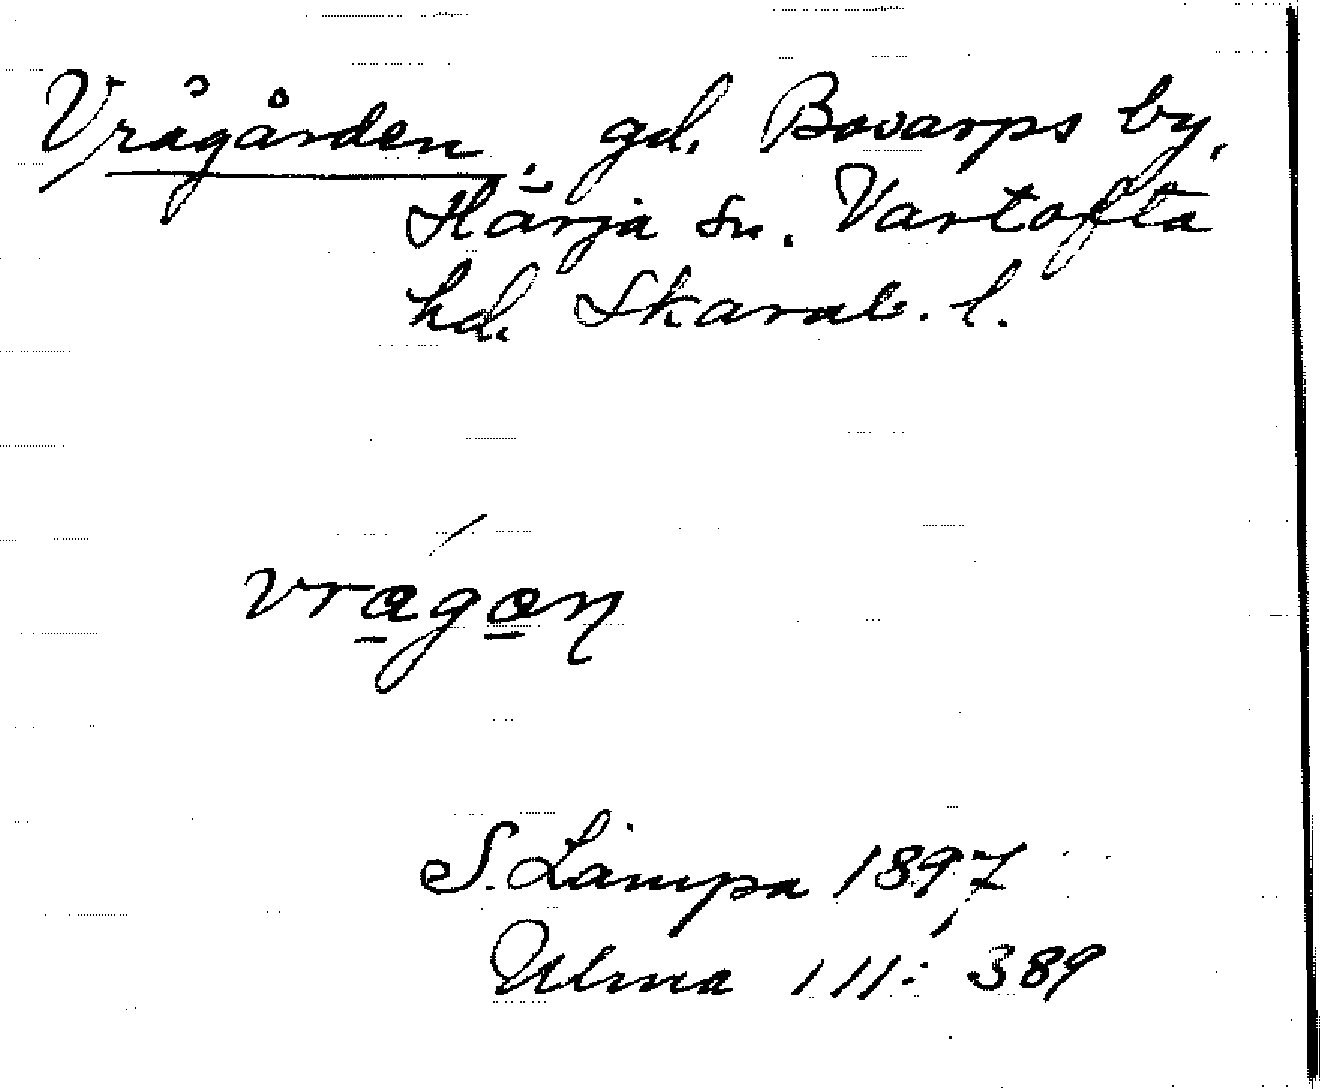 Vrågården, gd. Bovarps by,
Härja sn. Vartofta
hd. Skarab. l.
vragan
S. Lampa 1897
Ulma 111: 389